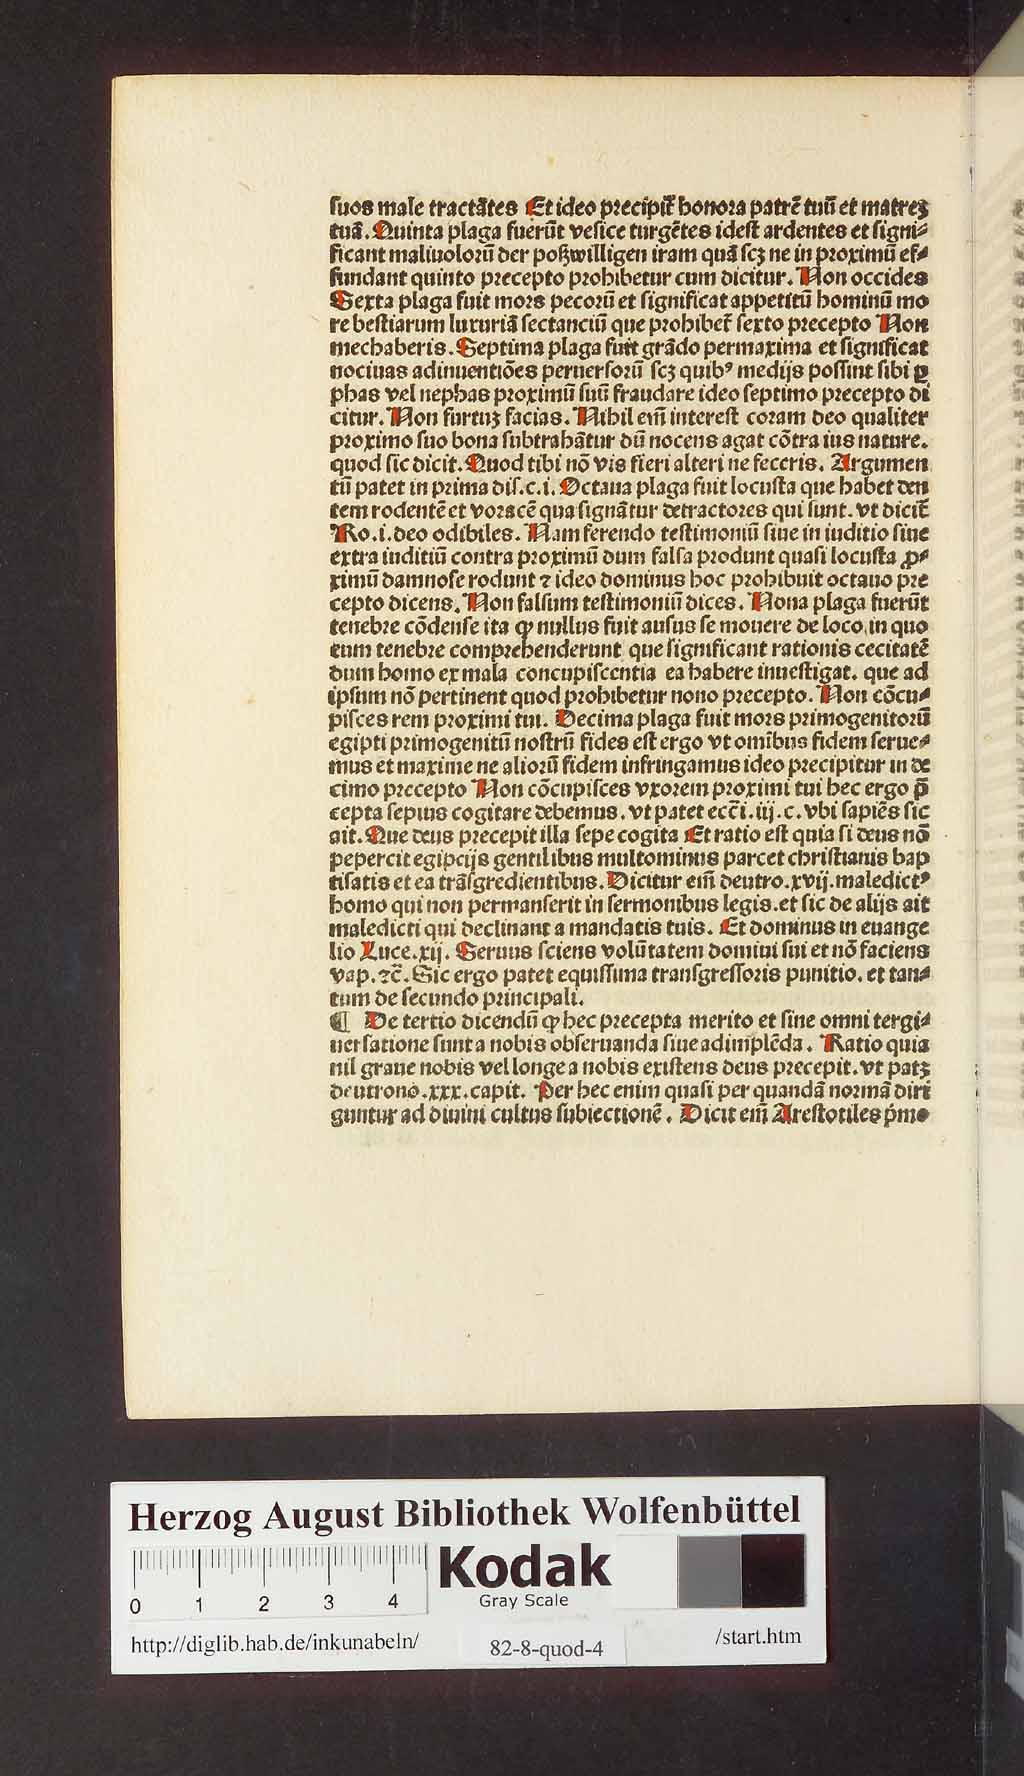 suos male tractātes Et ideo precipit̄ honora patrē tuū et matreꝫ
tuā. Quinta plaga fuerūt vesice turgētes idest ardentes et signi⸗
ficant maliuolorū der poßwilligen iram quā scꝫ ne in proximū ef⸗
fundant quinto precepto prohibetur cum dicitur. Non occides
Sexta plaga fuit mors pecorū et significat appetitū hominū mo
re bestiarum luxuriā sectanciū que prohibet̄ sexto precepto Non
mechaberis. Septima plaga fuit grādo permaxima et significat
nociuas adinuentiões peruersorū scꝫ quibꝰ medijs possint sibi ꝑ
phas vel nephas proximū suū fraudare ideo septimo precepto di
citur. Non furtuꝫ facias. Nihil em̄ interest coram deo qualiter
proximo suo bona subtrahātur dū nocens agat cōtra ius nature.
quod sic dicit. Quod tibi nō vis fieri alteri ne feceris. Argumen
tū patet in prima dis.c.i. Octaua plaga fuit locusta que habet den
tem rodentē et voracē qua signātur detractores qui sunt. vt dicit̄
Ro.i.deo odibiles. Nam ferendo testimoniū siue in iuditio siue
extra iuditiū contra proximū dum falsa produnt quasi locusta ꝓ⸗
ximū damnose rodunt ⁊ ideo dominus hoc prohibuit octauo pre
cepto dicens. Non falsum testimoniū dices. Nona plaga fuerūt
tenebre cōdense ita ꝙ nullus fuit ausus se mouere de loco in quo
eum tenebre comprehenderunt que significant rationis cecitatē
dum homo ex mala concupiscentia ea habere inuestigat. que ad
ipsum nō pertinent quod prohibetur nono precepto. Non cōcu⸗
pisces rem proximi tui. Decima plaga fuit mors primogenitorū
egipti primogenitū nostrū fides est ergo vt omībus fidem serue⸗
mus et maxime ne aliorū fidem infringamus ideo precipitur in de
cimo precepto Non cōcupisces vxorem proximi tui hec ergo p̄
cepta sepius cogitare debemus. vt patet ecc̄i.iij.c. vbi sapiēs sic
ait. Que deus precepit illa sepe cogita Et ratio est quia si deus nō
pepercit egipcijs gentilibus multominus parcet christianis bap
tisatis et ea trāsgredientibus. Dicitur em̄ deutro.xvij.maledictꝰ
homo qui non permanserit in sermonibus legis.et sic de alijs ait
maledicti qui declinant a mandatis tuis. Et dominus in euange
lio Luce.xij. Seruus sciens volūtatem domini sui et nō faciens
vap.⁊c̄. Sic ergo patet equissima transgressoris punitio. et tan⸗
tum de secundo principali.
¶ De tertio dicendū ꝙ hec precepta merito et sine omni tergi⸗
uersatione sunt a nobis obseruanda siue adimplēda. Ratio quia
nil graue nobis vel longe a nobis existens deus precepit. vt patꝫ
deutrono.xxx.capit. Per hec enim quasi per quandā normā diri
guntur ad diuini cultus subiectionē. Dicit em̄ Arestotiles p̄mo
Herzog August Bibliothek Wolfenbüttel
Kodak
Gray Scale
0 1 2 3 4
http://diglib.hab.de/inkunabeln/ 82-8-quod-4 /start.htm